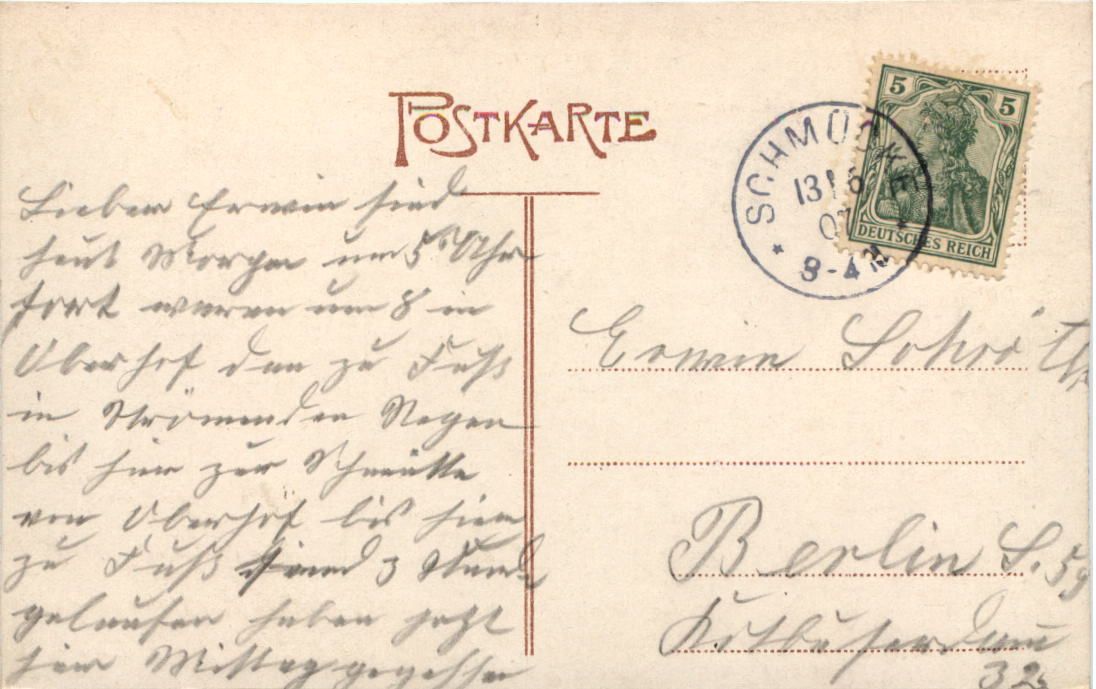 POSTKARTE
5 5
DEUTSCHES REICH
SCHMÜCKE
13 6
07
3-4 N
Lieber Erwin sind
heut Morgen um 5 Uhr
fort waren um 8 in
Oberhof dan zu Fuß
in Strömenden Regen
bis hier zur Schmütke
von Oberhof bis hier
zu Fuß sind 3 Stund
gelaufen haben jetzt
hier Mittag gegessen
Erwin Schröth
Berlin S. 59
Kotbuserdam
32